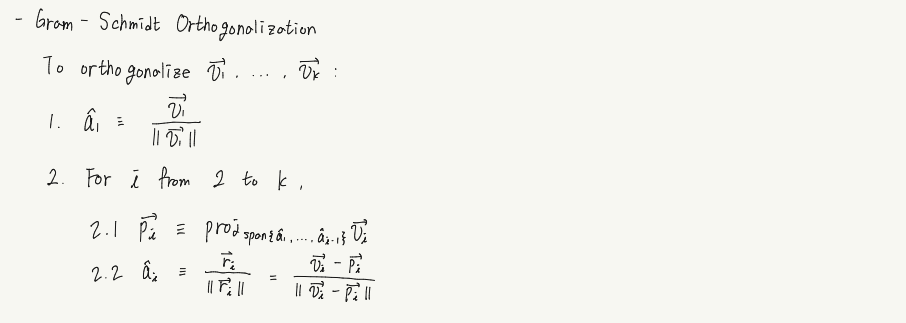 - Gram - Schmidt Orthogonalization
To orthogonalize $\vec{v_1}, \dots, \vec{v_k}$ :
1. $\hat{a}_1 \equiv \frac{\vec{v_1}}{\|\vec{v_1}\|}$
2. For i from 2 to k,
2.1 $\vec{p_i} \equiv \text{proj}_{\text{span}\{\hat{a}_1, \dots, \hat{a}_{i-1}\}} \vec{v_i}$
2.2 $\hat{a}_i \equiv \frac{\vec{r_i}}{\|\vec{r_i}\|} = \frac{\vec{v_i} - \vec{p_i}}{\|\vec{v_i} - \vec{p_i}\|}$